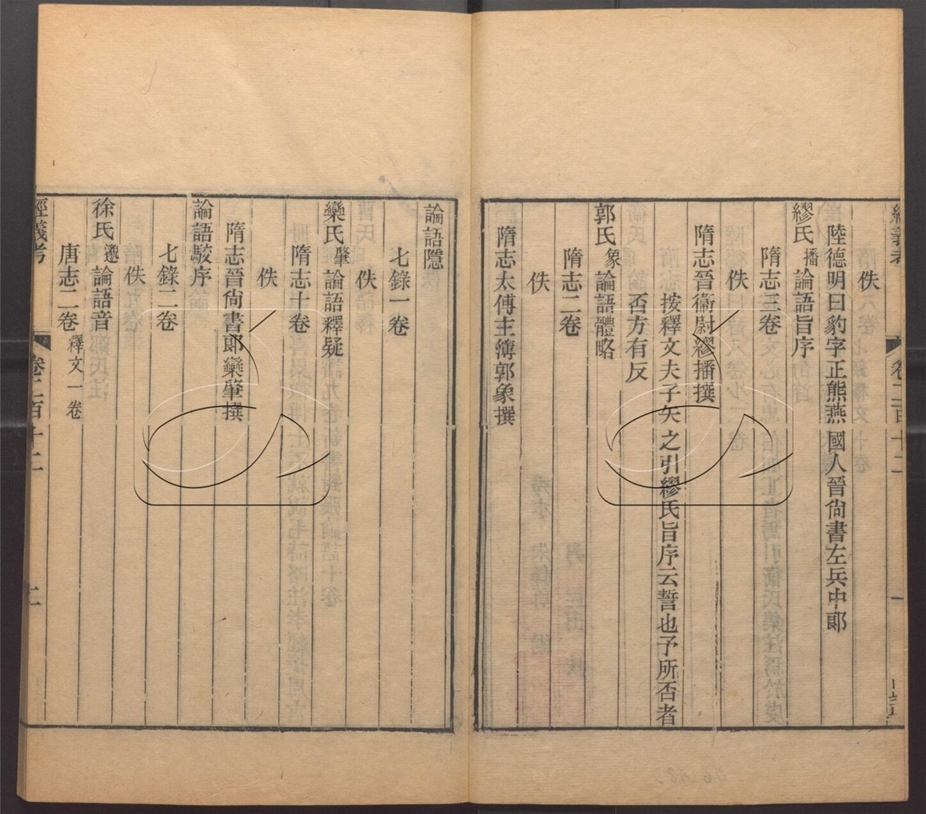 佚
陸德明曰豹字正熊燕國人晉尙書左兵中郞
繆氏播論語旨序
隋志三卷
佚
隋志晉衞尉繆播撰
按釋文夫子矢之引繆氏旨序云誓也予所否者
否方有反
郭氏象論語體略
隋志二卷
佚
隋志太傅主簿郭象撰
論語隱
七錄一卷
佚
欒氏肇論語釋疑
隋志十卷
佚
隋志晉尙書郞欒肇撰
論語駮序
七錄二卷
佚
徐氏邈論語音
唐志二卷釋文一卷
經義考 卷二百十二 二